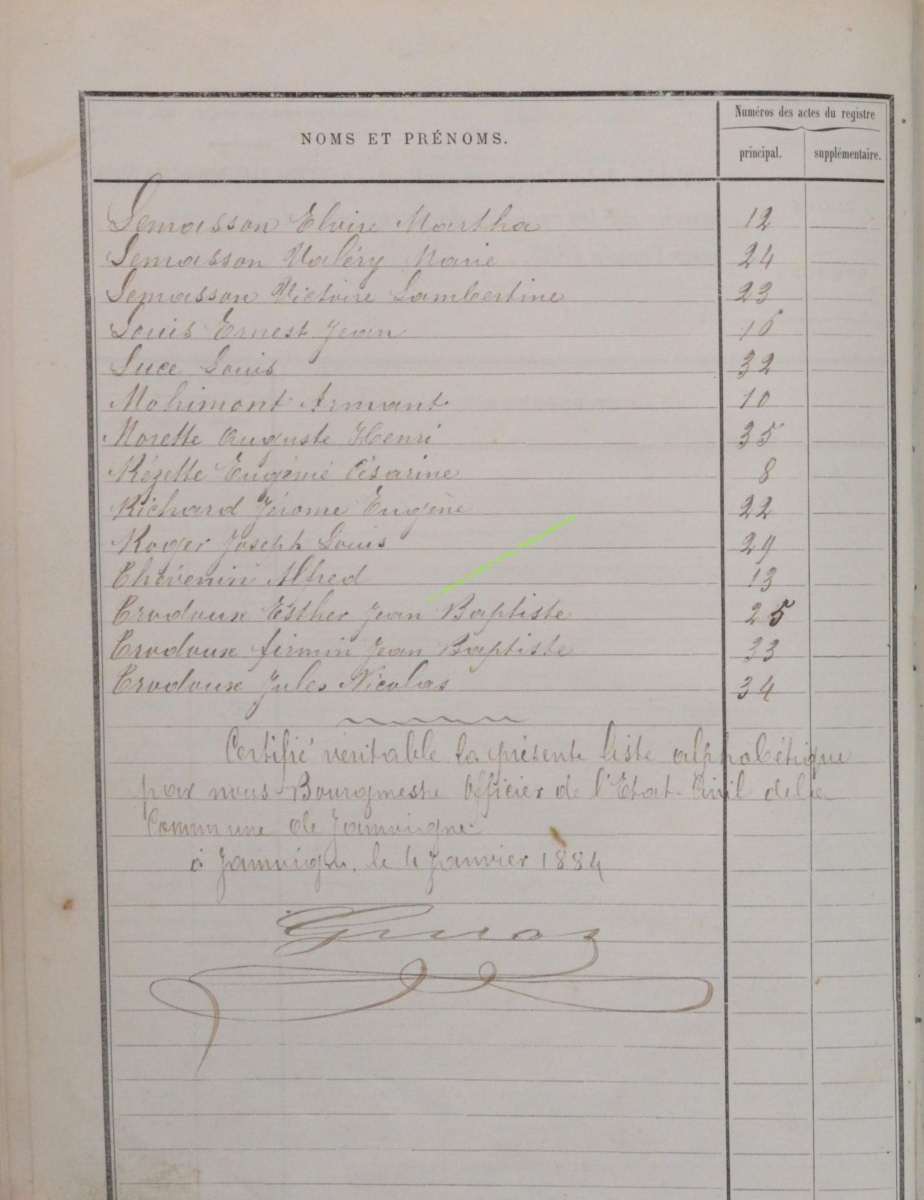 NOMS ET PRÉNOMS.
Numéros des actes du registre
principal. supplémentaire.
Lemasson Elvire Martha 12
Lemasson Valéry Marie 24
Lemasson Victoire Lambertine 23
Louis Ernest Jean 16
Luce Louis 32
Mohimont Armant 10
Morette Auguste Henri 35
Rézette Eugénie Césarine 8
Richard Jérome Eugène 22
Roger Joseph Louis 29
Thévenin Alfred 13
Trodoux Esther Jean Baptiste 25
Trodoux firmin Jean Baptiste 33
Trodoux Jules Nicolas 34
Certifié véritable la présente liste alphabétique
par nous Bourgmestre Officier de l'Etat-Civil de la
Commune de Jamoigne
à Jamoigne, le 4 Janvier 1884